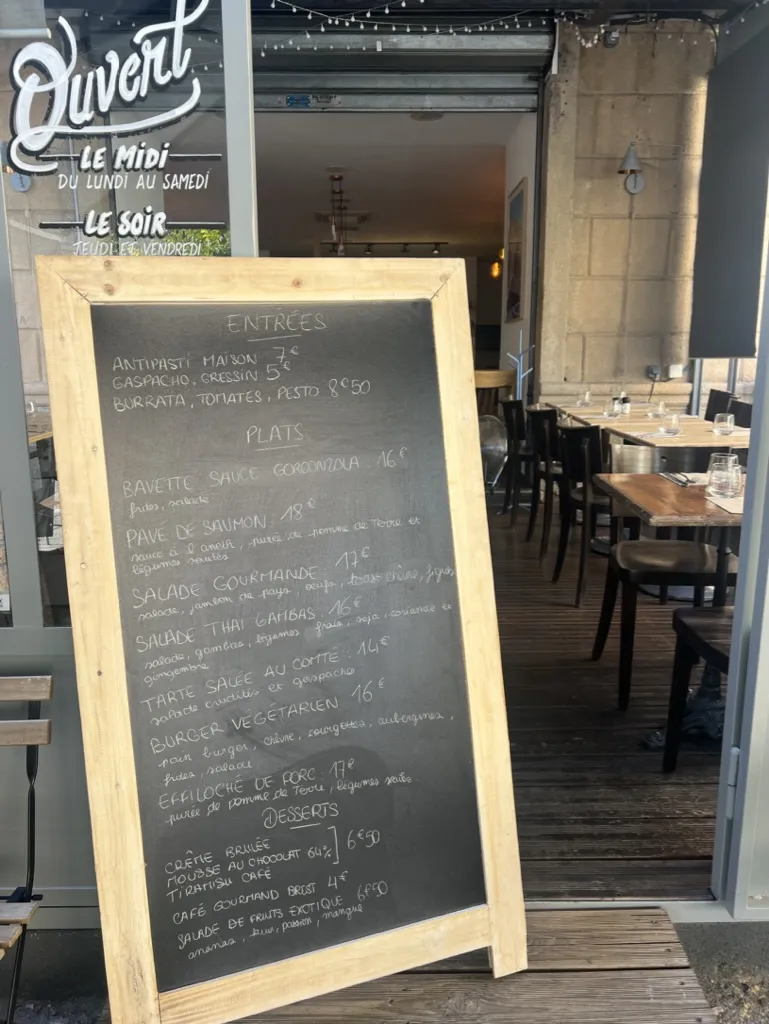 Ouvert
LE MIDI
DU LUNDI AU SAMEDI
LE SOIR
JEUDI ET VENDREDI
ENTRÉES
ANTIPASTI MAISON 7€
GASPACHO, GRESSIN 5€
BURRATA, TOMATES, PESTO 8€50
PLATS
BAVETTE SAUCE GORGONZOLA 16€
frites, salade
PAVÉ DE SAUMON 18€
sauce à l'aneth, purée de pomme de terre et
légumes sautés
SALADE GOURMANDE 17€
salade, jambon de pays, oeufs, toast chèvre, figues
SALADE THAI GAMBAS 16€
salade, gambas, légumes frais, soja, coriande et
gingembre
TARTE SALÉE AU COMTÉ 14€
salade crudités et gaspacho
BURGER VÉGÉTARIEN 16€
pain burger, chèvre, courgettes, aubergines,
frites, salade
EFFILOCHÉ DE PORC 17€
purée de pomme de terre, légumes sautés
DESSERTS
CRÈME BRULÉE
MOUSSE AU CHOCOLAT 64%] 6€50
TIRAMISU CAFÉ
CAFÉ GOURMAND 4€
SALADE DE FRUITS EXOTIQUE 6€50
ananas, kiwi, passion, mangue